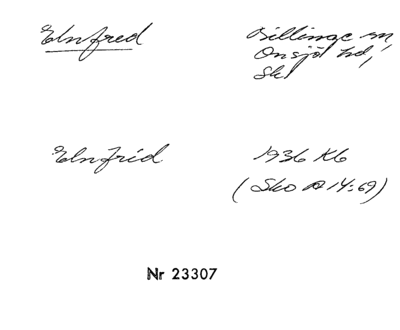 Elnfred
Billinge sn,
Onsjö hd,
Sk.
Elnfrid
1936 Kb
(Sko A 14:69)
Nr 23307